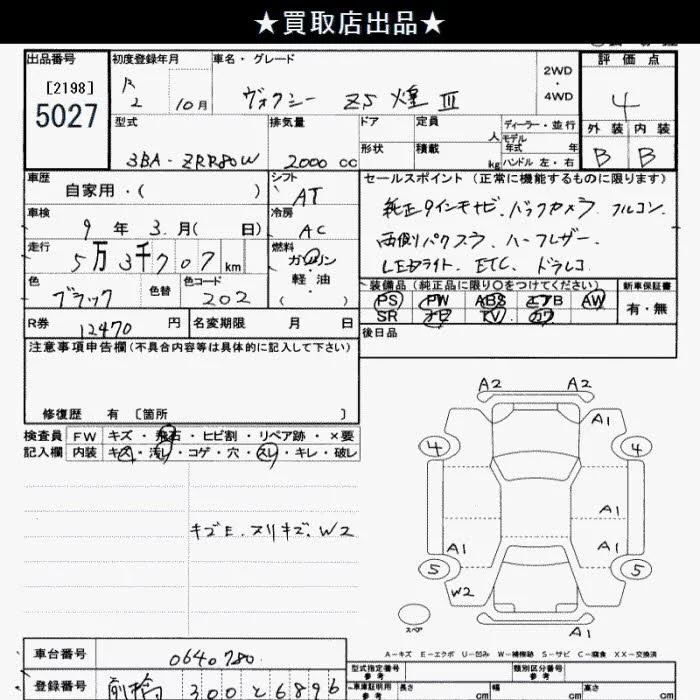 ★買取店出品★
出品番号 初度登録年月 車名・グレード 2WD・4WD 評価点
[2198]
5027
R2 10月 ヴォクシー ZS 煌 Ⅲ 4
型式 排気量 ドア 定員 人 ディーラー・並行 外装 内装
形状 積載 kg モデル年式 年 ハンドル 左・右 B B
3BA-ZRR80W 2000 cc
車歴 自家用・( ) シフト AT セールスポイント(正常に機能するものに限ります)
車検 9年 3月( 日) 冷房 AC 純正9インチナビ. バックカメラ. フルコン.
走行 5万3千707km 燃料 ガソリン・軽・油・( ) 両側パワスラ. ハーフレザー.
LEDライト. ETC. ドラレコ
色 ブラック 色替 色コード 202 装備品(純正品に限り○をつけてください) 新車保証書
PS PW ABS エアB AW 有・無
SR ナビ TV カワ
R券 12470 円 名変期限 月 日 後日品
注意事項申告欄(不具合内容等は具体的に記入して下さい)
修復歴 有 〔箇所 〕
検査員 FW キズ・飛石・ヒビ割・リペア跡・×要
記入欄 内装 キズ・汚レ・コゲ・穴・スレ・キレ・破レ
キズE. スリキズ. W2
A2 A2
A1
4 4
A1
A1 A1
5 5
W2
スペア
A1
A-キズ E-エクボ U-凹み W-補修跡 S-サビ C-腐食 XX-交換済
車台番号 0640780 型式指定番号 参考 類別区分番号 参考
登録番号 前橋 300 と 6896 車庫証明用 参考 長さ cm 幅 cm 高さ cm